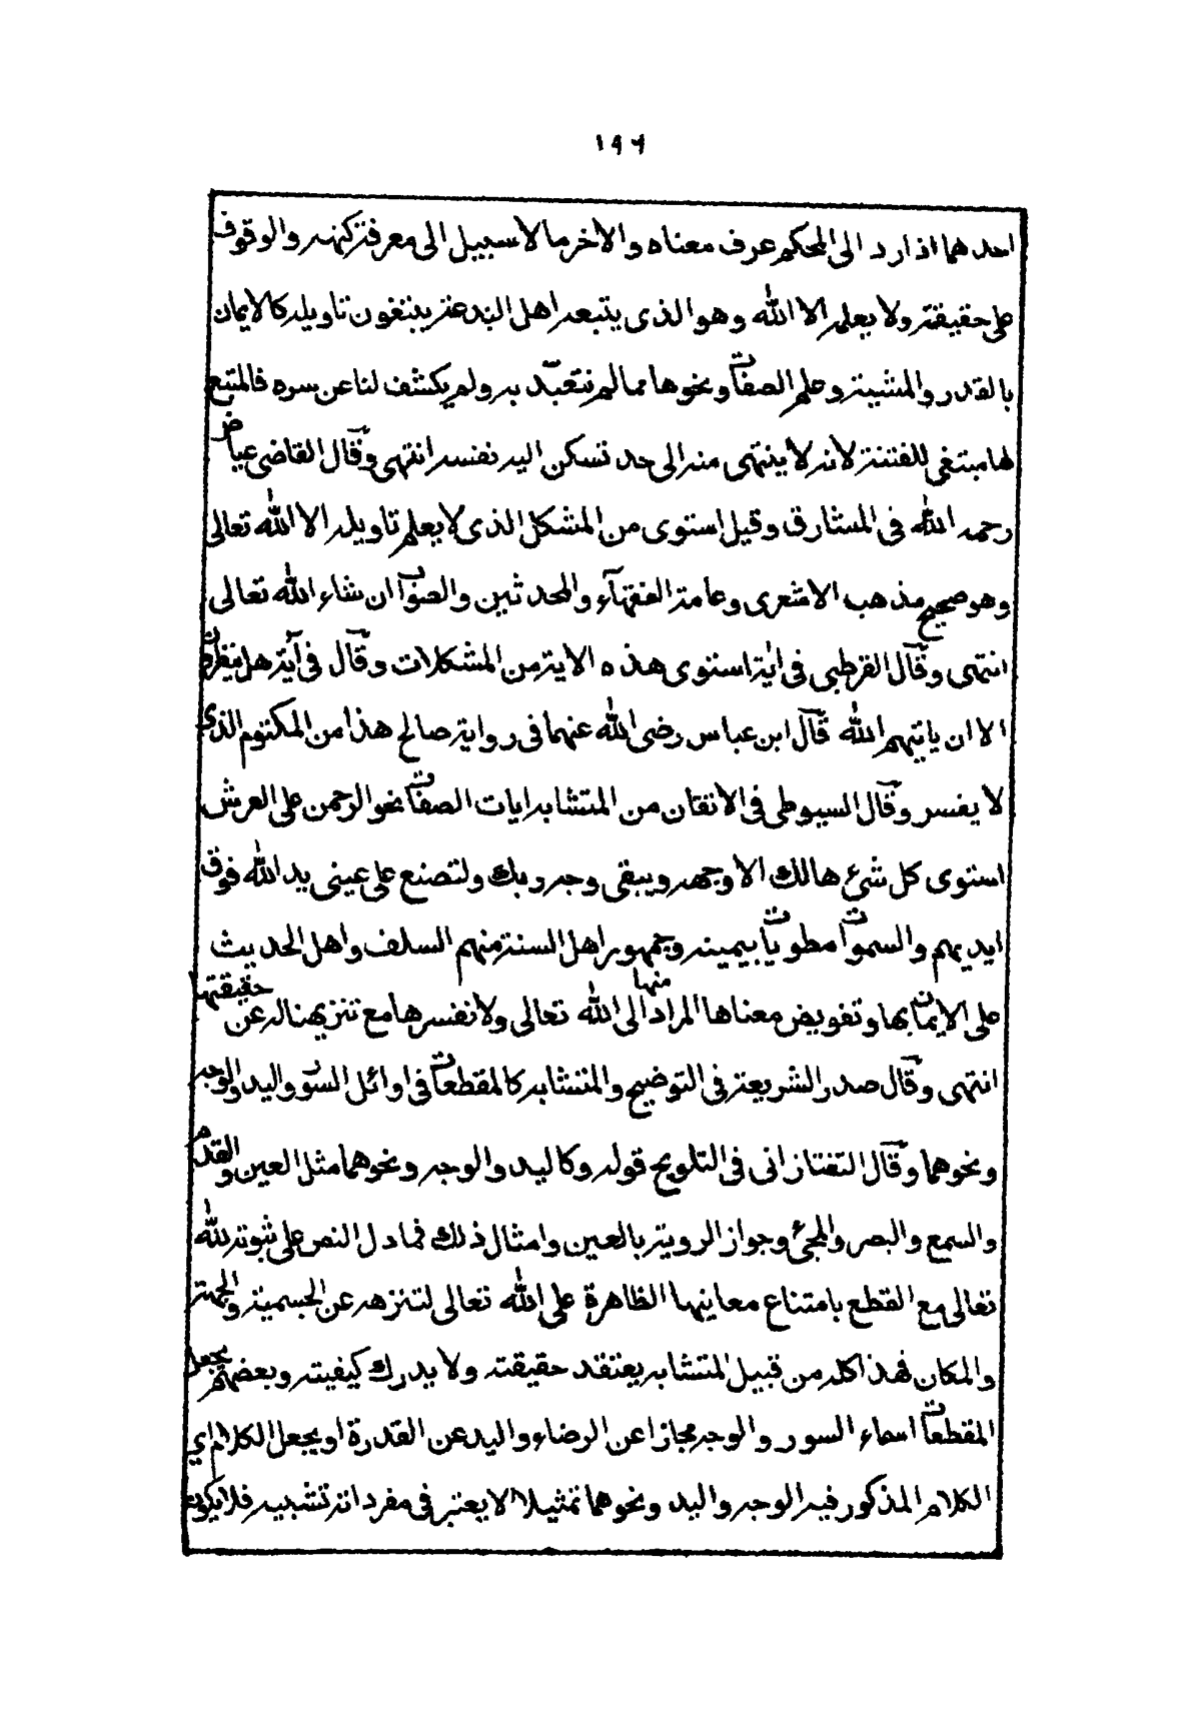 ١٩٦
احدهما اذا رد الى المحكم عرف معناه والاخر ما لا سبيل الى معرفة كنهه والوقوف
على حقيقته ولا يعلمه الا الله وهو الذى يتبعه اهل البدعة يبتغون تاويله كالايمان
بالقدر والمشيئة وعلم الصفات ونحوها مما لم نتعبّد به ولم يكشف لنا عن سره فالمتبع
لها مبتغى للفتنة لانه لا ينتهى منه الى حد تسكن اليه نفسه انتهى وقال القاضى عياض
رحمه الله فى المشارق وقيل استوى من المشكل الذى لا يعلم تاويله الا الله تعالى
وهو صحيح مذهب الاشعرى وعامة الفقهاء والمحدثين والصواب ان شاء الله تعالى
انتهى وقال القرطبى فى اية استوى هذه الاية من المشكلات وقال فى آية هل ينظرون
الا ان ياتيهم الله قال ابن عباس رضى الله عنهما فى رواية صالح هذا من المكتوم الذى
لا يفسر وقال السيوطى فى الاتقان من المتشابه ايات الصفات نحو الرحمن على العرش
استوى كل شئ هالك الا وجهه ويبقى وجه ربك ولتصنع على عينى يد الله فوق
ايديهم والسموات مطويات بيمينه وجمهور اهل السنة منهم السلف واهل الحديث
على الايمان بها وتفويض معناها المراد منها الى الله تعالى ولا نفسرها مع تنزيهنا له عن حقيقتها
انتهى وقال صدر الشريعة فى التوضيح والمتشابه كالمقطعات فى اوائل السور واليد والوجه
ونحوهما وقال التفتازانى فى التلويح قوله وكاليد والوجه ونحوهما مثل العين والقدم
والسمع والبصر والمجئ وجواز الروية بالعين وامثال ذلك فما دل النص على ثبوته لله
تعالى مع القطع بامتناع معاينها الظاهرة على الله تعالى لتنزهه عن الجسمية والجهة
والمكان فهذا كله من قبيل المتشابه يعتقد حقيقته ولا يدرك كيفيته وبعضهم يجعل
المقطعات اسماء السور والوجه مجازا عن الرضاء واليد عن القدرة او يجعل الكلام اى
الكلام المذكور فيه الوجه واليد ونحوهما تمثيلا لا يعتبر فى مفرداته تشبيه فلا يكون